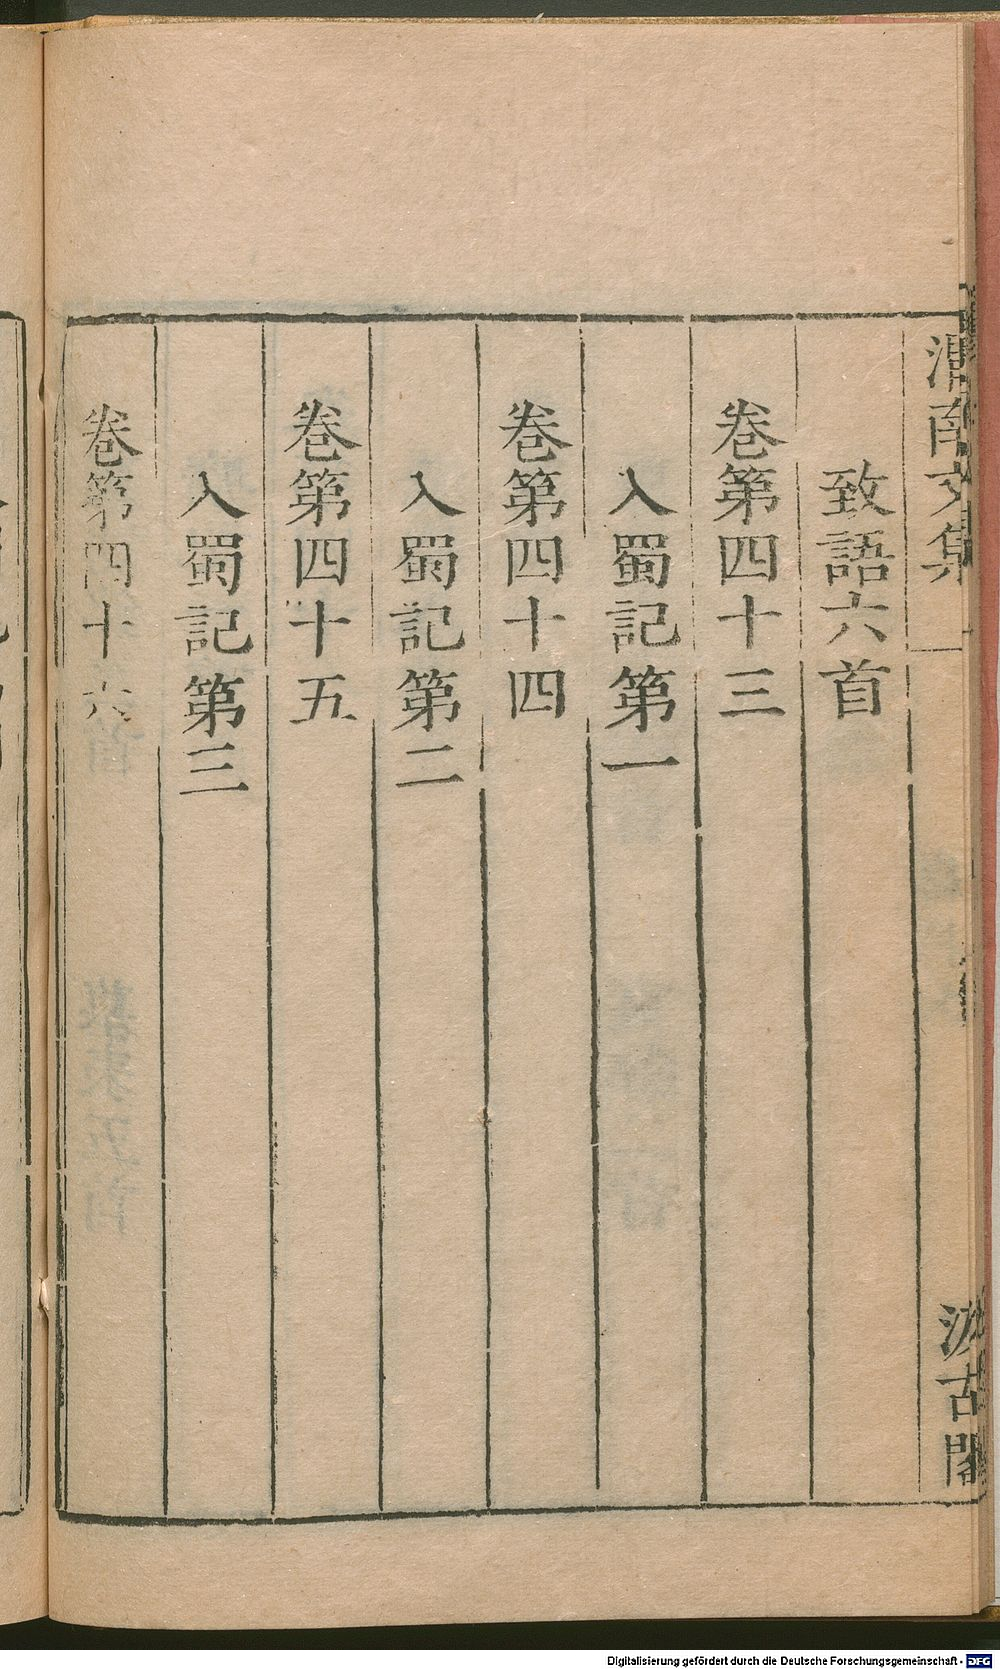 渭南文集
汲古閣
致語六首
卷第四十三
入蜀記第一
卷第四十四
入蜀記第二
卷第四十五
入蜀記第三
卷第四十六
Digitalisierung gefördert durch die Deutsche Forschungsgemeinschaft - DFG